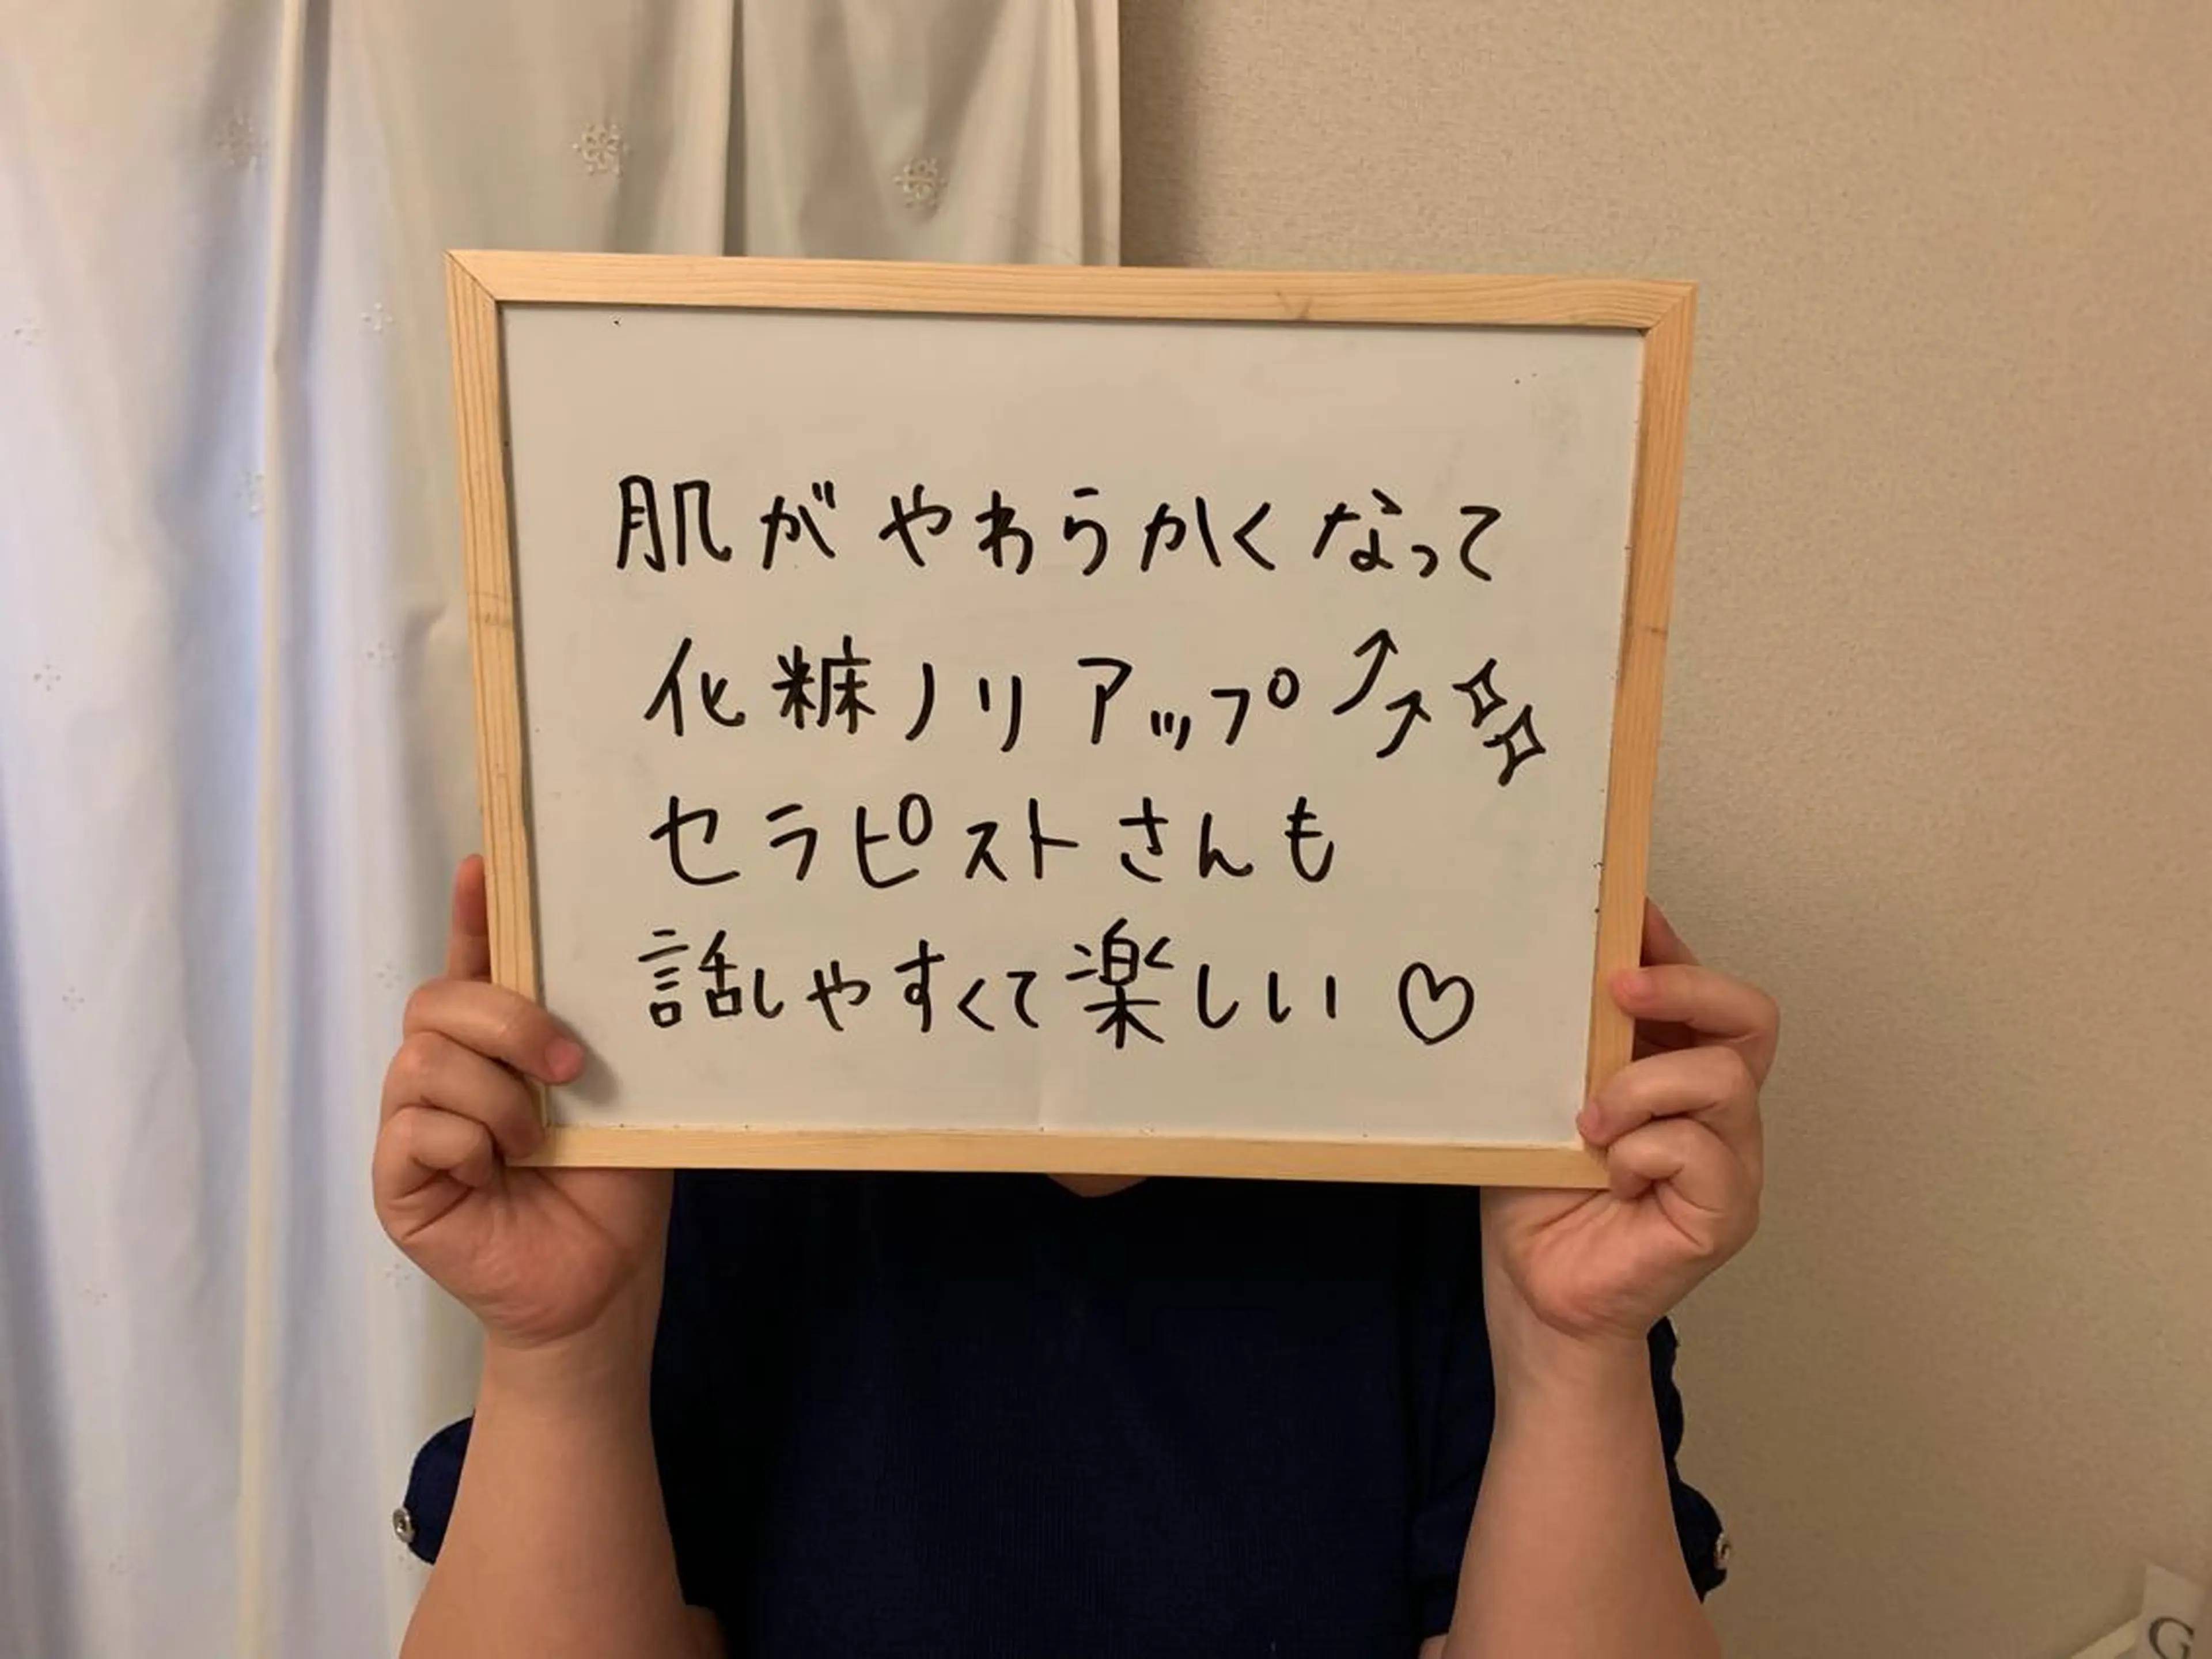 肌がやわらかくなって
化粧ノリアップ⤴⤴✧✧
セラピストさんも
話しやすくて楽しい♡
G